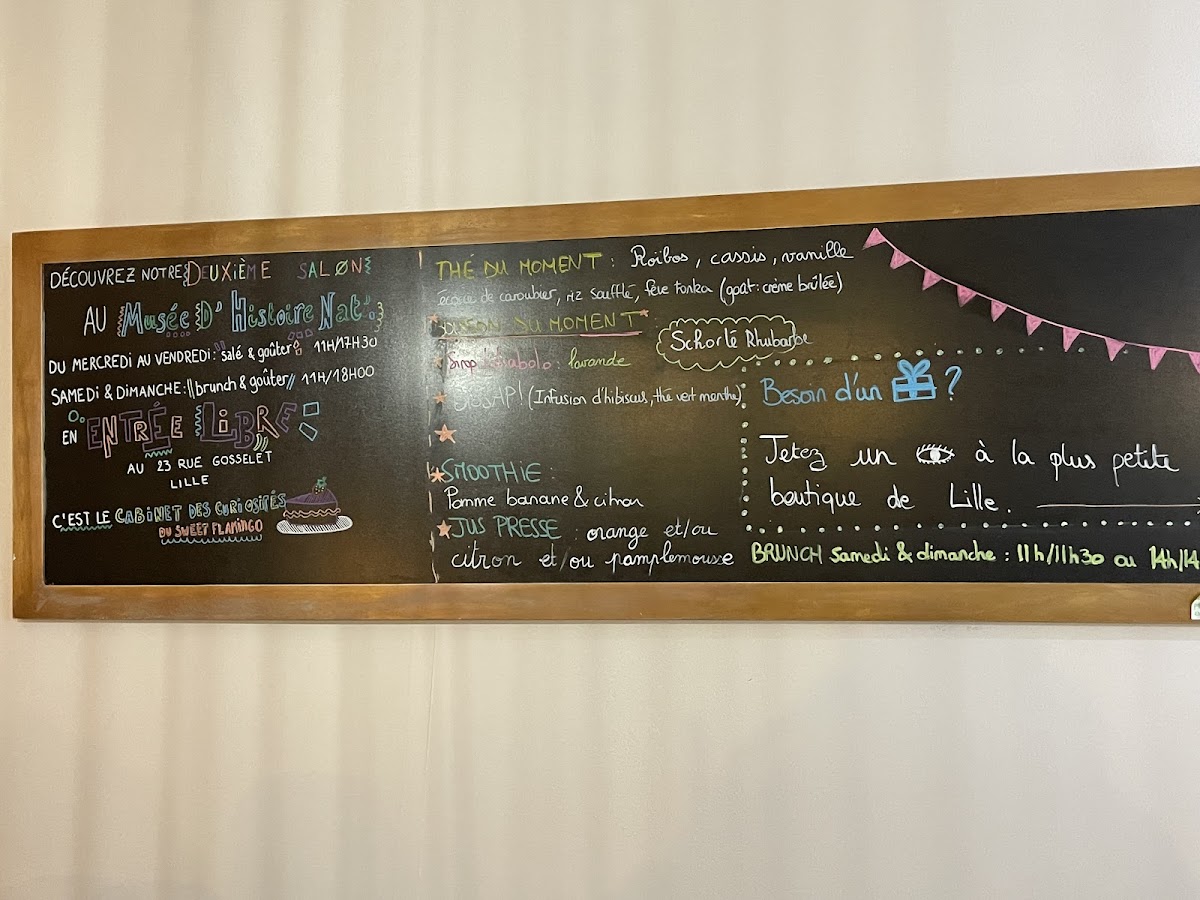 DÉCOUVREZ NOTRE DEUXIÈME SALON
AU Musée D'Histoire Nat'.
DU MERCREDI AU VENDREDI: salé & goûter 11H/17H30
SAMEDI & DIMANCHE: brunch & goûter 11H/18H00
EN ENTRÉE LIBRE
AU 23 RUE GOSSELET
LILLE
C'EST LE CABINET DES CURIOSITÉS
DU SWEET FLAMINGO
THÉ DU MOMENT : Roïbos, cassis, vanille
écorce de caroubier, riz soufflé, fève tonka (goût: crème brûlée)
BOISSON DU MOMENT
Schorlé Rhubarbe
Sirop : lavande
(Infusion d'hibiscus, thé vert menthe)
SMOOTHIE :
Pomme banane & citron
JUS PRESSE : orange et/ou
citron et/ou pamplemousse
Besoin d'un ?
Jetez un à la plus petite
boutique de Lille.
BRUNCH samedi & dimanche : 11h/11h30 ou 14h/14